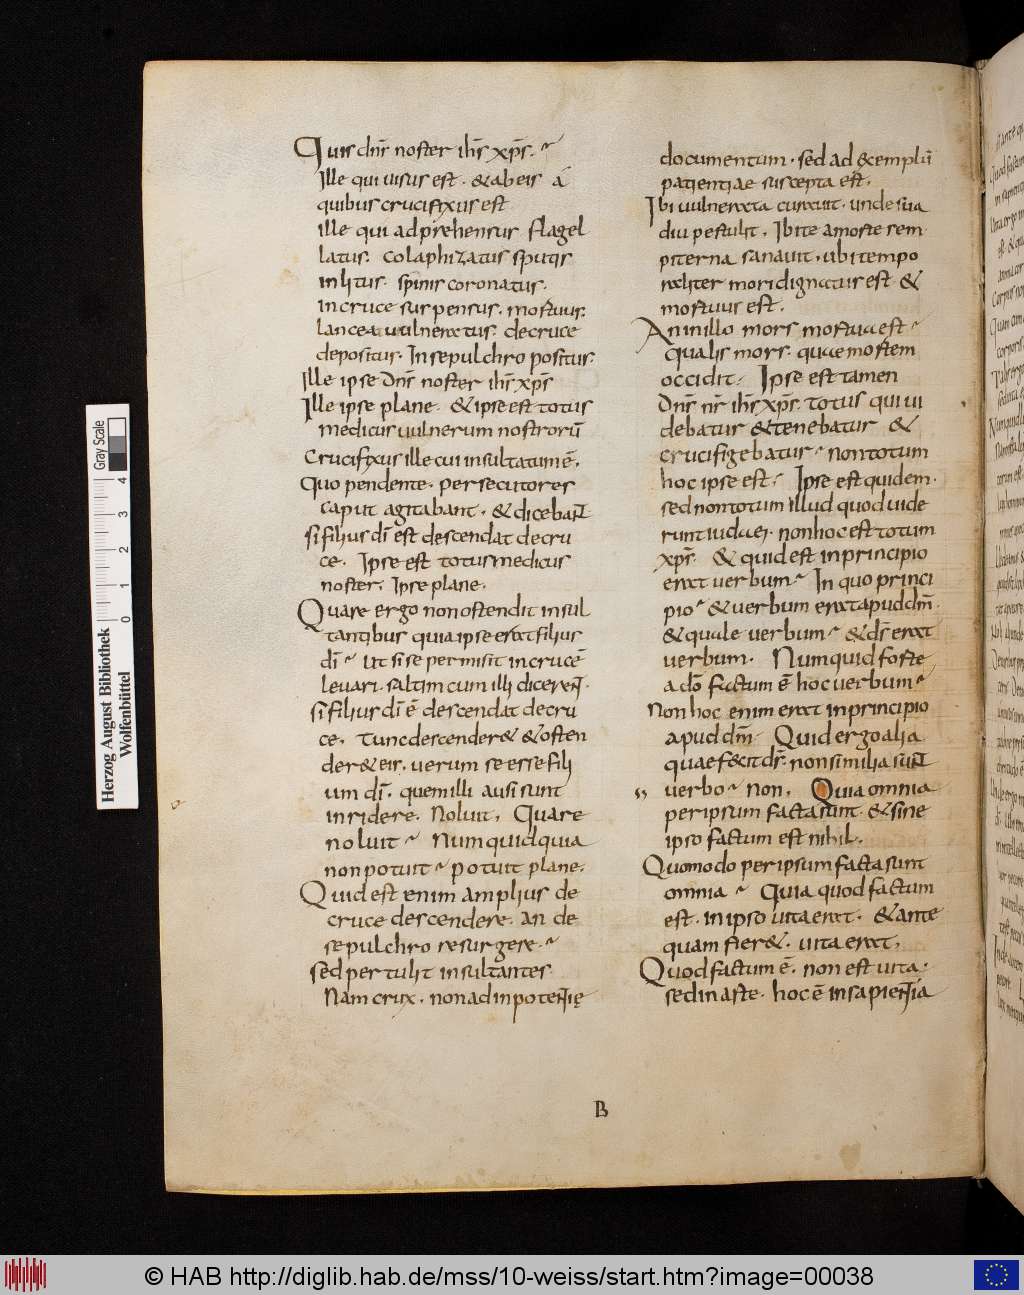 Quis dn̄r noster ihs̄ xp̄s.
Ille qui uisus est. & abeis á
quibus crucifixus est
ille qui adprehensus flagel
latus. colaphizatus sputis
inlitus. spinis coronatus.
in cruce suspensus. mortuus.
lancea uulneratus. decruce
depositus. In sepulchro positus.
Ille ipse Dn̄s noster ihs̄ xp̄s
Ille ipse plane. & ipse est totus
medicus uulnerum nostrorū
Crucifixus ille cui insultatum ē.
Quo pendente. persecutores
caput agitabant. & dicebant
si filius dī est descendat decru
ce. Ipse est totus medicus
noster. Ipse plane.
Quare ergo non ostendit insul
tantibus quia ipse erat filius
dī ut si se permisit in crucē
leuari. saltim cum illi dicerent.
si filius dī ē descendat decru
ce. Tunc descender& & osten
der& eis. uerum se esse fili
um dī. quem illi ausi sunt
inridere. Noluit. Quare
noluit Numquid quia
non potuit potuit plane.
Quid est enim amplius de
cruce descendere. an de
sepulchro resurgere.
sed pertulit insultantes
Nam crux. non ad inpotentię
documentum. sed ad &emplū
patientiae suscepta est.
Ibi uulnerata curauit. unde sua
diu pertulit. Ibi te a morte sem
piterna sanauit, ubi tempo
raliter mori dignatus est &
mortuus est.
An in illo mors mortua est
qualis mors. quae mortem
occidit. Ipse est tamen
Dn̄s nr̄ ihs̄ xp̄s. totus qui ui
debatur & tenebatur &
crucifigebatur non totum
hoc ipse est. Ipse est quidem.
sed non totum illud quod uide
runt iudaei. non hoc est totum
xp̄s. & quid est in principio
erat uerbum In quo princi
pio & uerbum erat apud dm̄.
& quale uerbum & ds̄ erat
uerbum. Numquid forte
a dō factum ē hoc uerbum
Non hoc enim erat in principio
apud dm̄. Quid ergo alia
quae fecit ds̄. non similia sunt
uerbo non. Quia omnia
per ipsum facta sunt. & sine
ipso factum est nihil.
Quomodo per ipsum facta sunt
omnia Quia quod factum
est. in ipso uita erat. & ante
quam fier&. uita erat.
Quod factum ē. non est uita.
sed in arte. hoc ē in sapientia
B
Herzog August Bibliothek
Wolfenbüttel
0 1 2 3 4
Gray Scale
© HAB http://diglib.hab.de/mss/10-weiss/start.htm?image=00038